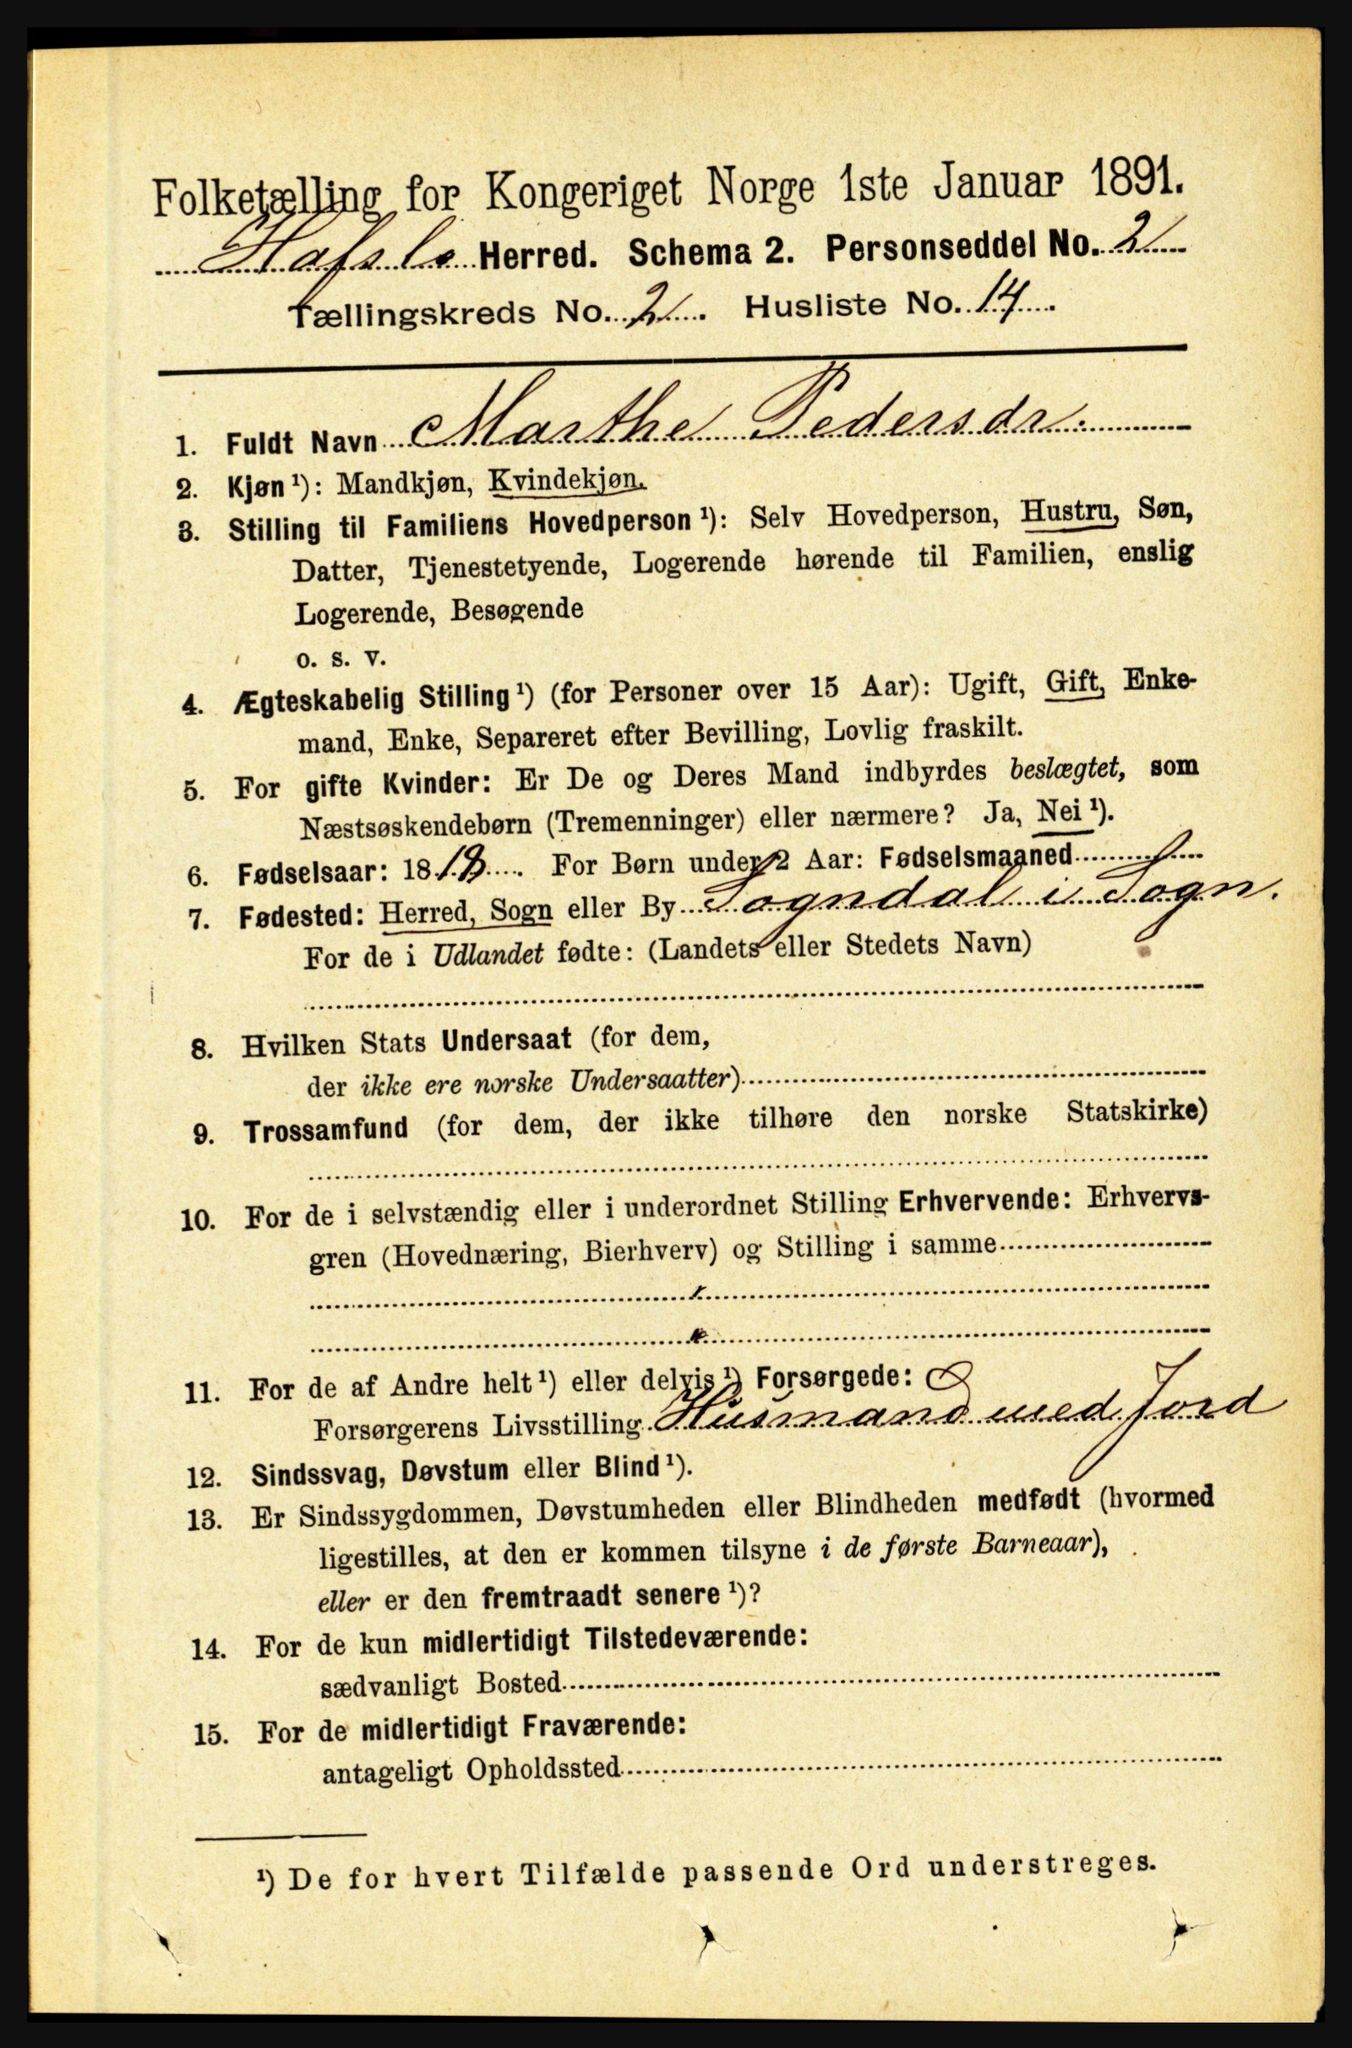 Folketælling for Kongeriget Norge 1ste Januar 1891.
Hafslo Herred. Schema 2. Personseddel No. 2
Tællingskreds No. 2. Husliste No. 14.
1. Fuldt Navn Marthe Pedersdr.
2. Kjøn¹): Mandkjøn, Kvindekjøn.
3. Stilling til Familiens Hovedperson¹): Selv Hovedperson, Hustru, Søn,
Datter, Tjenestetyende, Logerende hørende til Familien, enslig
Logerende, Besøgende
o. s. v.
4. Ægteskabelig Stilling¹) (for Personer over 15 Aar): Ugift, Gift, Enke-
mand, Enke, Separeret efter Bevilling, Lovlig fraskilt.
5. For gifte Kvinder: Er De og Deres Mand indbyrdes beslægtet, som
Næstsøskendebørn (Tremenninger) eller nærmere? Ja, Nei¹).
6. Fødselsaar: 1818. For Børn under 2 Aar: Fødselsmaaned
7. Fødested: Herred, Sogn eller By Sogndal i Sogn.
For de i Udlandet fødte: (Landets eller Stedets Navn)
8. Hvilken Stats Undersaat (for dem,
der ikke ere norske Undersaatter)
9. Trossamfund (for dem, der ikke tilhøre den norske Statskirke)
10. For de i selvstændig eller i underordnet Stilling Erhvervende: Erhvervs-
gren (Hovednæring, Bierhverv) og Stilling i samme
11. For de af Andre helt¹) eller delvis¹) Forsørgede:
Forsørgerens Livsstilling Husmand med Jord
12. Sindssvag, Døvstum eller Blind¹).
13. Er Sindssygdommen, Døvstumheden eller Blindheden medfødt (hvormed
ligestilles, at den er kommen tilsyne i de første Barneaar),
eller er den fremtraadt senere¹)?
14. For de kun midlertidigt Tilstedeværende:
sædvanligt Bosted
15. For de midlertidigt Fraværende:
antageligt Opholdssted
¹) De for hvert Tilfælde passende Ord understreges.